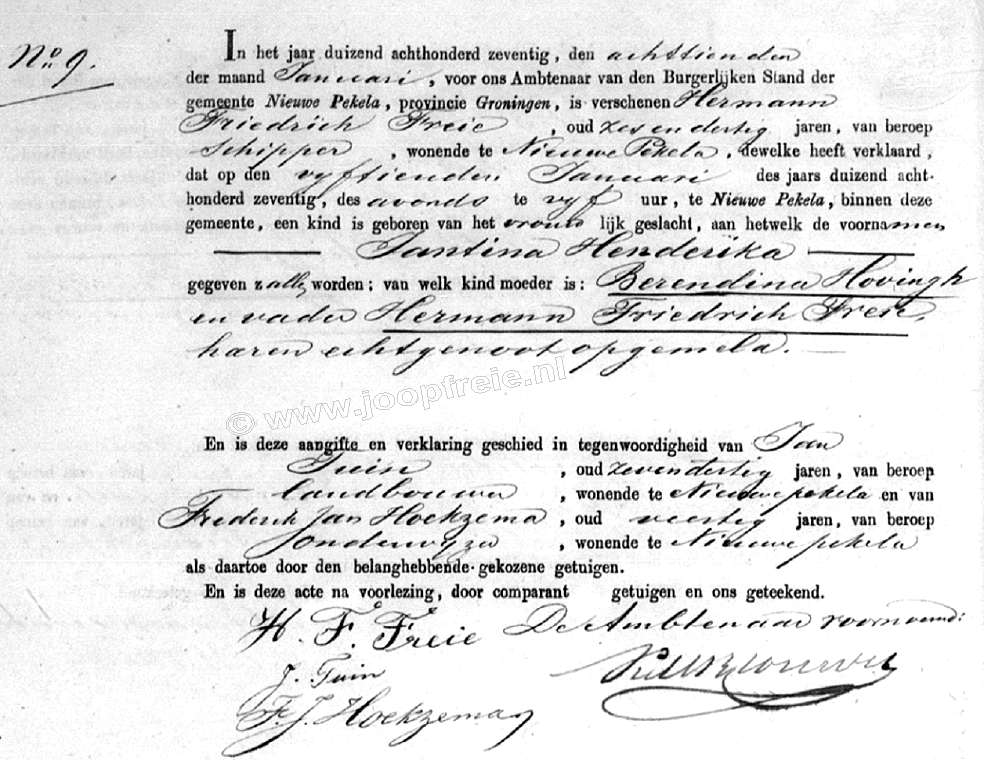 No 9.
In het jaar duizend achthonderd zeventig, den achttienden
der maand Januari, voor ons Ambtenaar van den Burgerlijken Stand der
gemeente Nieuwe Pekela, provincie Groningen, is verschenen Hermann
Friedrich Freie, oud zes en dertig jaren, van beroep
Schipper, wonende te Nieuwe Pekela, dewelke heeft verklaard,
dat op den vyftienden Januari des jaars duizend acht-
honderd zeventig, des avonds te vyf uur, te Nieuwe Pekela, binnen deze
gemeente, een kind is geboren van het vrouwlijk geslacht, aan hetwelk de voornamen
Jantina Henderika
gegeven zullen worden; van welk kind moeder is: Berendina Hovingh
en vader Hermann Friedrich Freie,
haren echtgenoot opgemeld.
© www.joopfreie.nl
En is deze aangifte en verklaring geschied in tegenwoordigheid van Jan
Tuin, oud zevendertig jaren, van beroep
landbouwer, wonende te Nieuwe pekela en van
Frederik Jan Hoekzema, oud veertig jaren, van beroep
onderwyzer, wonende te Nieuwe pekela
als daartoe door den belanghebbende gekozene getuigen.
En is deze acte na voorlezing, door comparant getuigen en ons geteekend.
H. F. Freie De Ambtenaar voornoemd:
J. Tuin
F. J. Hoekzema